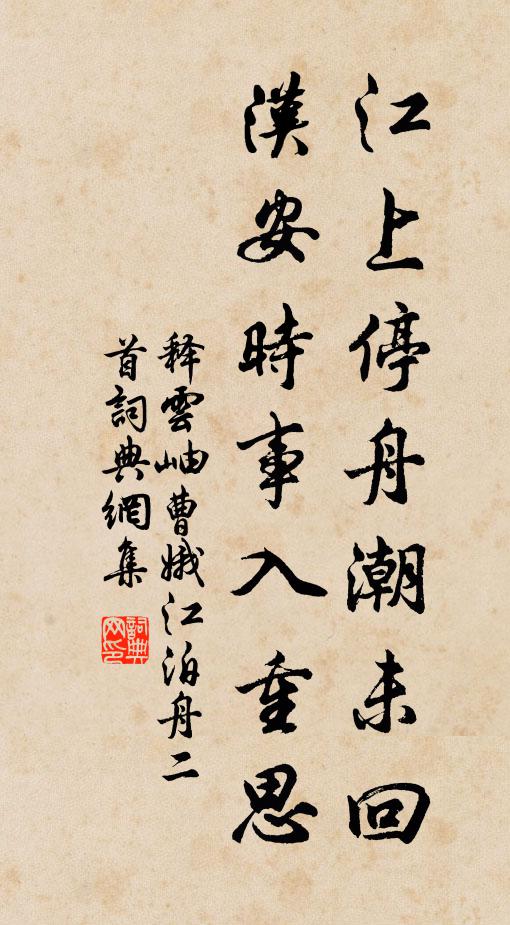 江上停舟潮未回
漢安時事入重思
释雲岫曹娥江泊舟二
首詞典網集
詞典
网印